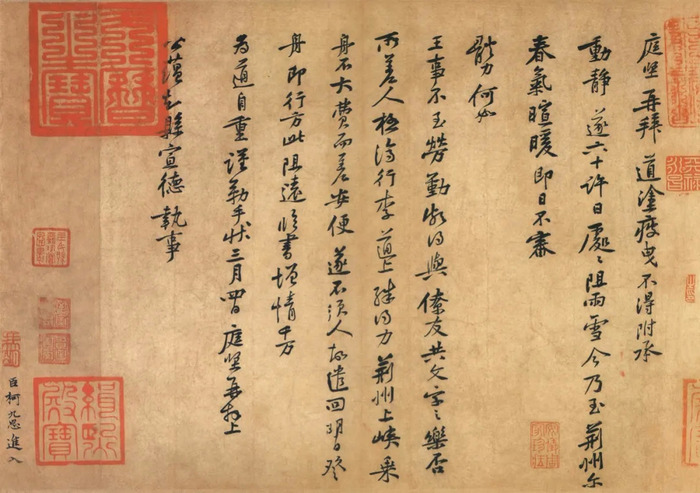 庭堅再拜道塗疲曳不得附承
動靜遂六十許日處〻阻雨雪今乃至荊州爾
春氣暄暖即日不審
體力何如
王事不至勞勤頗得與僚友共文字之樂否
所差人極濟行李道上殊得力荊州上峽乘
舟不大費而差安便遂不須人故遣回明日發
舟即行方此阻遠臨書增情千萬
為道自重謹勒手狀三月四日庭堅再拜上
公蘊知縣宣德執事
天曆之寶
緝熙殿寶
臣柯九思進入